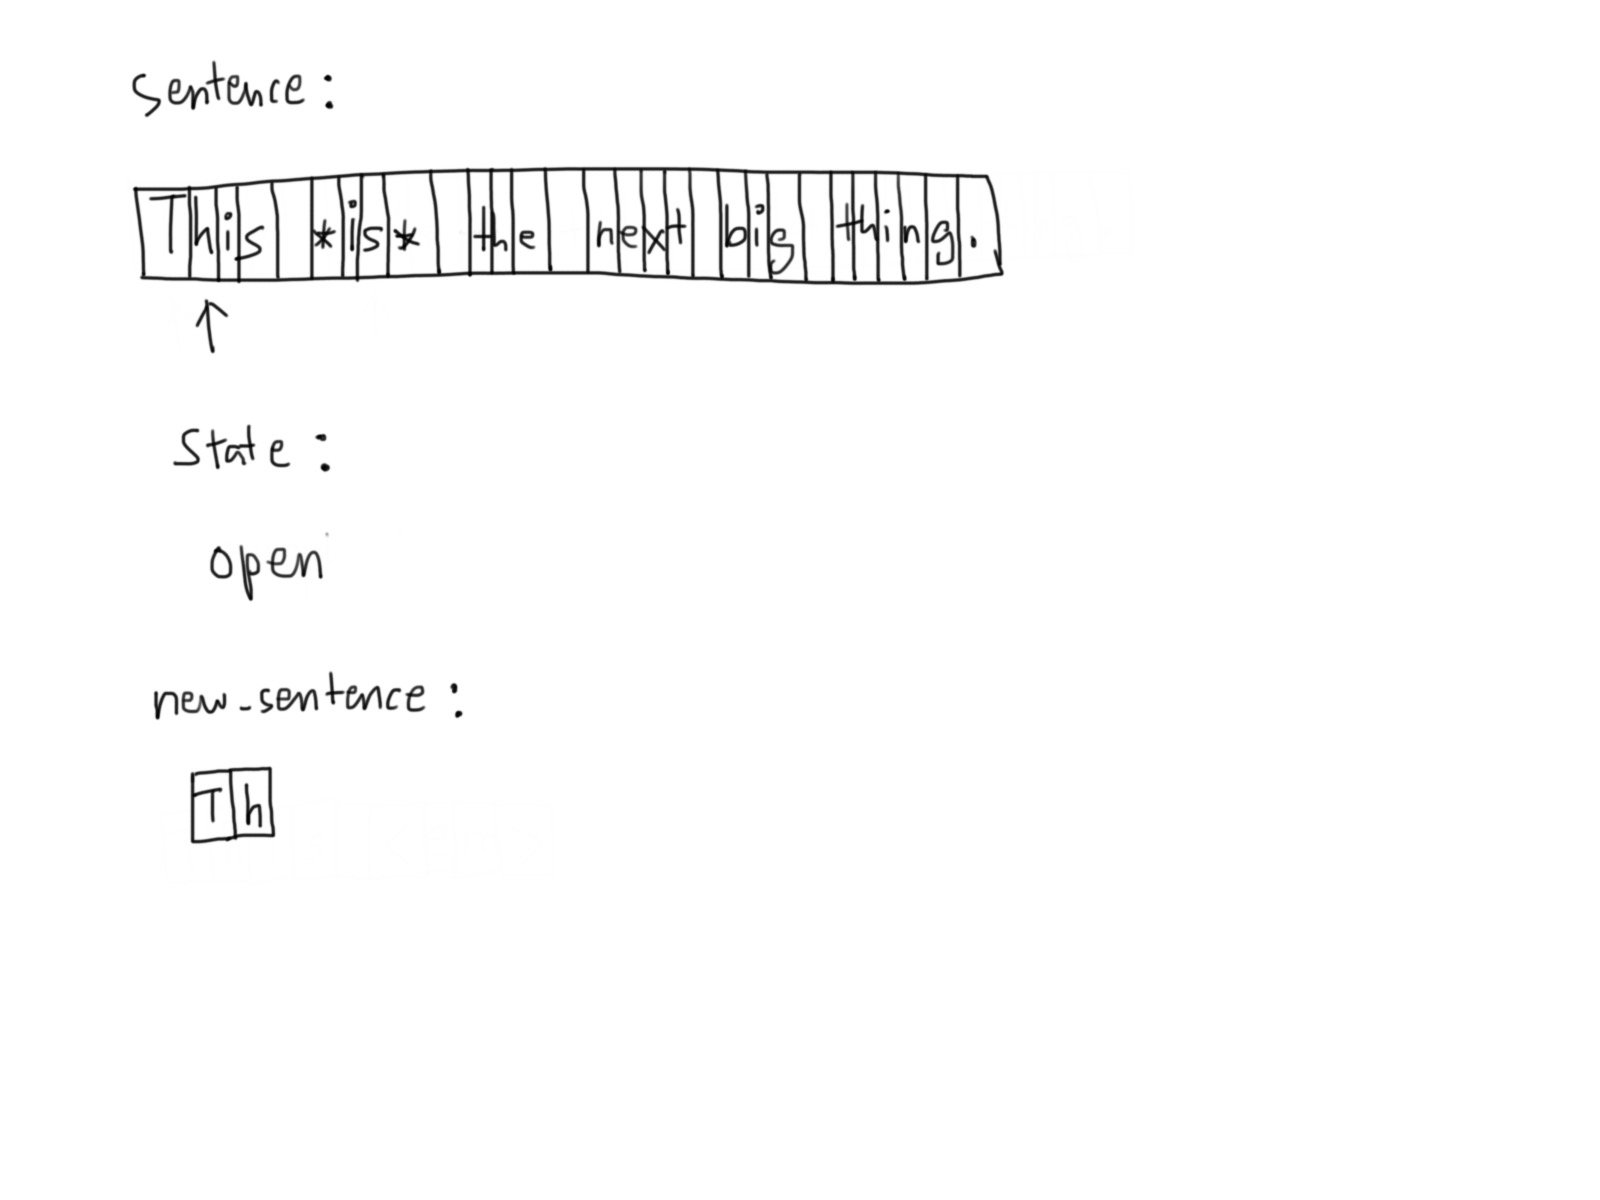 sentence:
This *is* the next big thing.
↑
state:
open
new_sentence:
Th